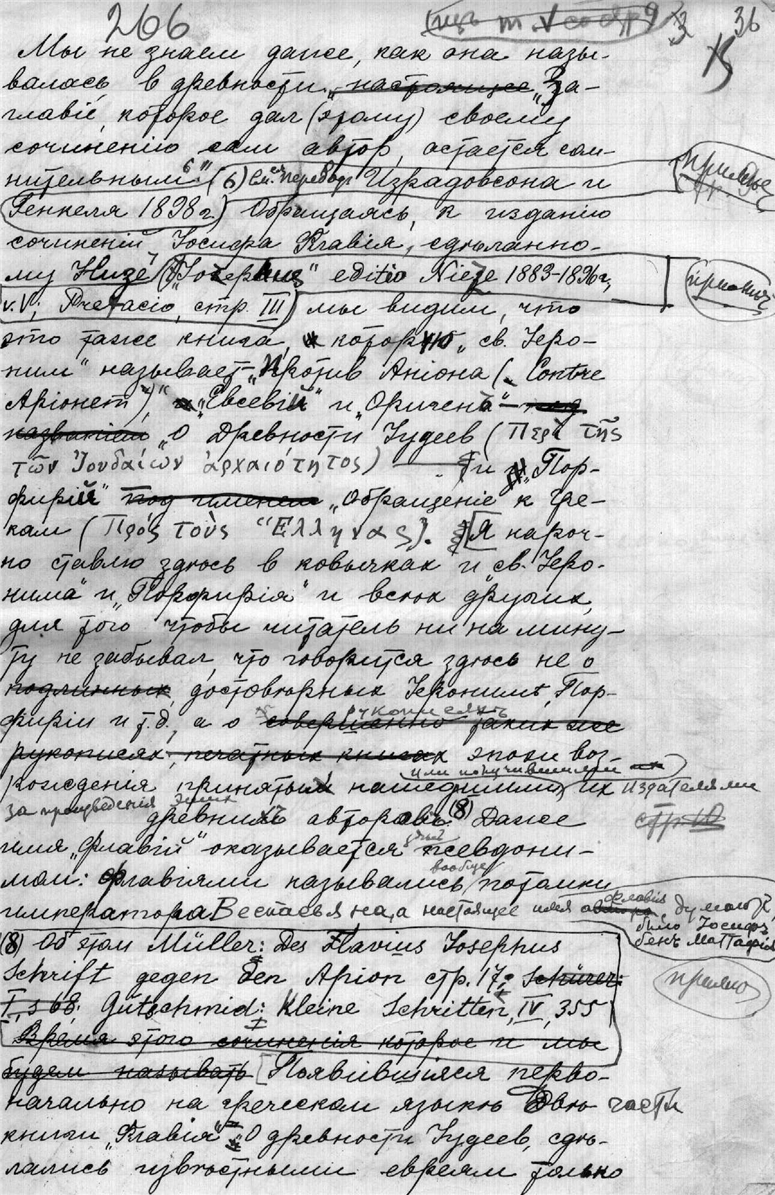 266
36
Мы не знаем даже, как она назы-
валась въ древности, настоящее „За-
главіе, которое дал (этому) своему
сочиненію сам автор, остается сом-
нительным" (6) См. перевод Израэльсона и
Генкеля 1898 г.) Обращаясь, къ изданію
сочиненій Іосифа Флавія, сдѣланно-
му Низе („Josephus" editio Niese 1883-1896 г,
v. V, Prefacio, стр. III) мы видим, что
это таже книга, которую „св. Іеро-
ним" называет „Против Апіона (Contre
Apionem)", „Евсевій" и „Оригенъ" под
названіем „О Древности Іудеев (Περὶ τῆς
τῶν Ἰουδαίων ἀρχαιότητος) и „Пор-
фирій" под именем „Обращеніе к Гре-
кам (Πρὸς τοὺς Ἕλληνας). [Я нароч-
но ставлю здѣсь в ковычках и „св. Іеро-
нима" и „Порфирія" и всѣх других,
для того чтобы читатель ни на мину-
ту не забывал, что говорится здѣсь не о
подлинных, достовѣрных Іеронимѣ, Пор-
фиріи и т.д, а о совершенно таких же
рукописях
рукописях, печатных книгах эпохи воз-
или получившими
рожденія принятых нашедшими их издателями
за произведенія этих
древних авторовъ (8) Даже
стр 10
имя „Флавій" оказывается псевдони-
вообще
мом: Флавіями назывались потомки
императора Веспасьяна, а настоящее имя автора думают,
Флавія
было Іосифъ
бенъ Маттафія
(8) Об этом Müller: Des Flavius Josephus
Schrift gegen den Apion стр. 17; Schürer:
I, s 68; Gutschmid: Kleine Schriften, IV, 355
Время этого сочиненія которое и мы
будем называть [Появившіяся перво-
начально на греческом языкѣ двѣ части
книги „Флавія" О древности Іудеев, сдѣ-
лались извѣстными евреям только